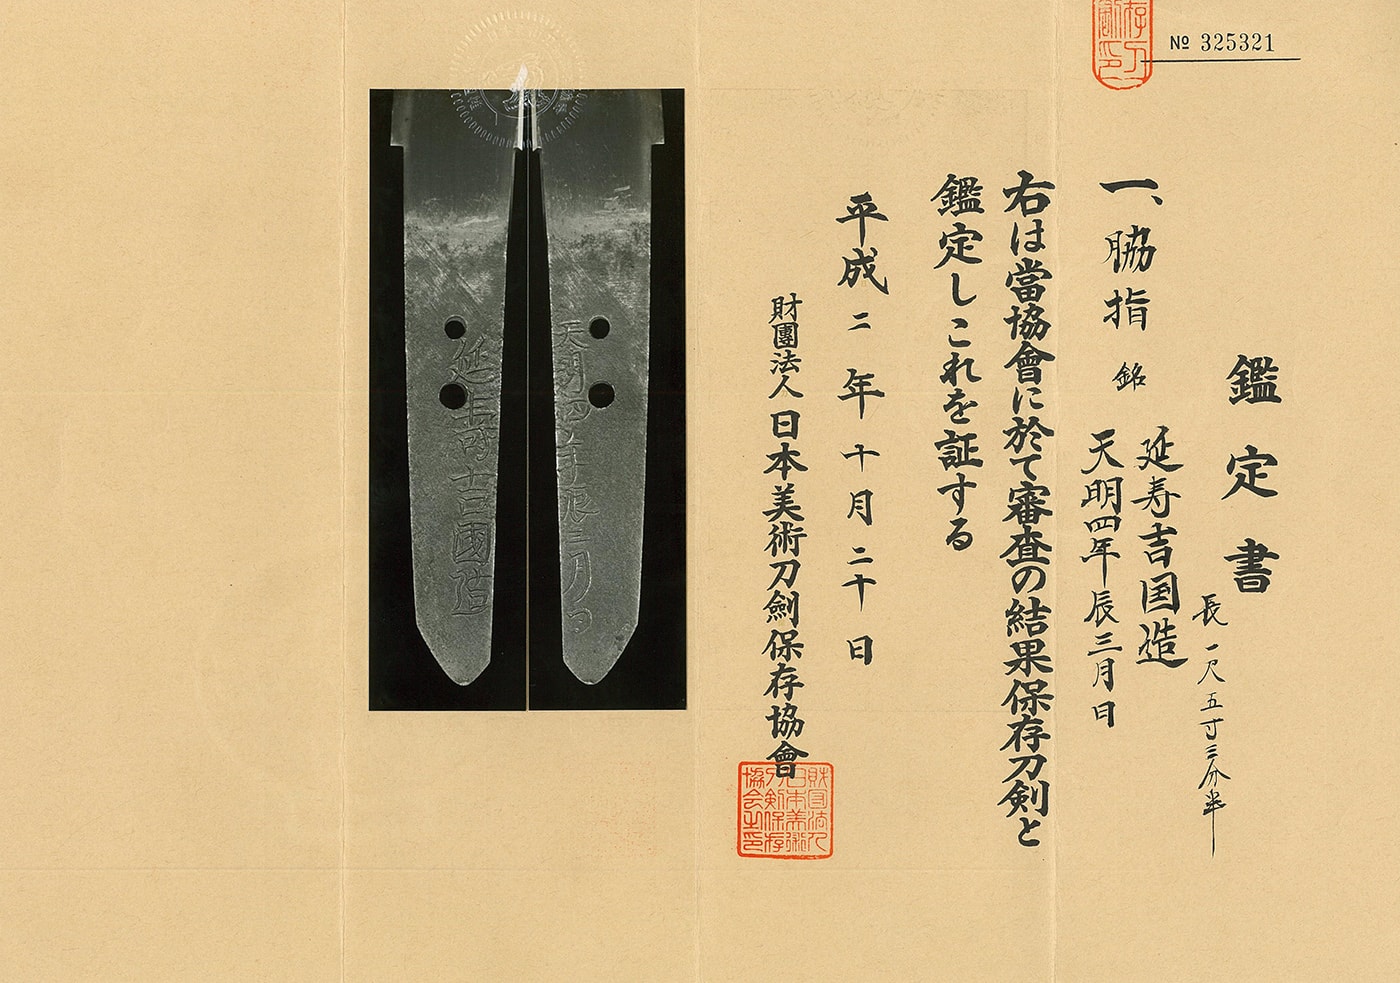 № 325321
鑑定書
一、脇指
銘
延寿吉国造
天明四年辰三月日
長一尺五寸三分半
右は當協會に於て審査の結果保存刀剣と
鑑定しこれを証する
平成二年十月二十日
財團法人日本美術刀劍保存協會
財団法人
日本美術
刀剣保存
協会之印
天明四年辰三月日
延壽吉國造